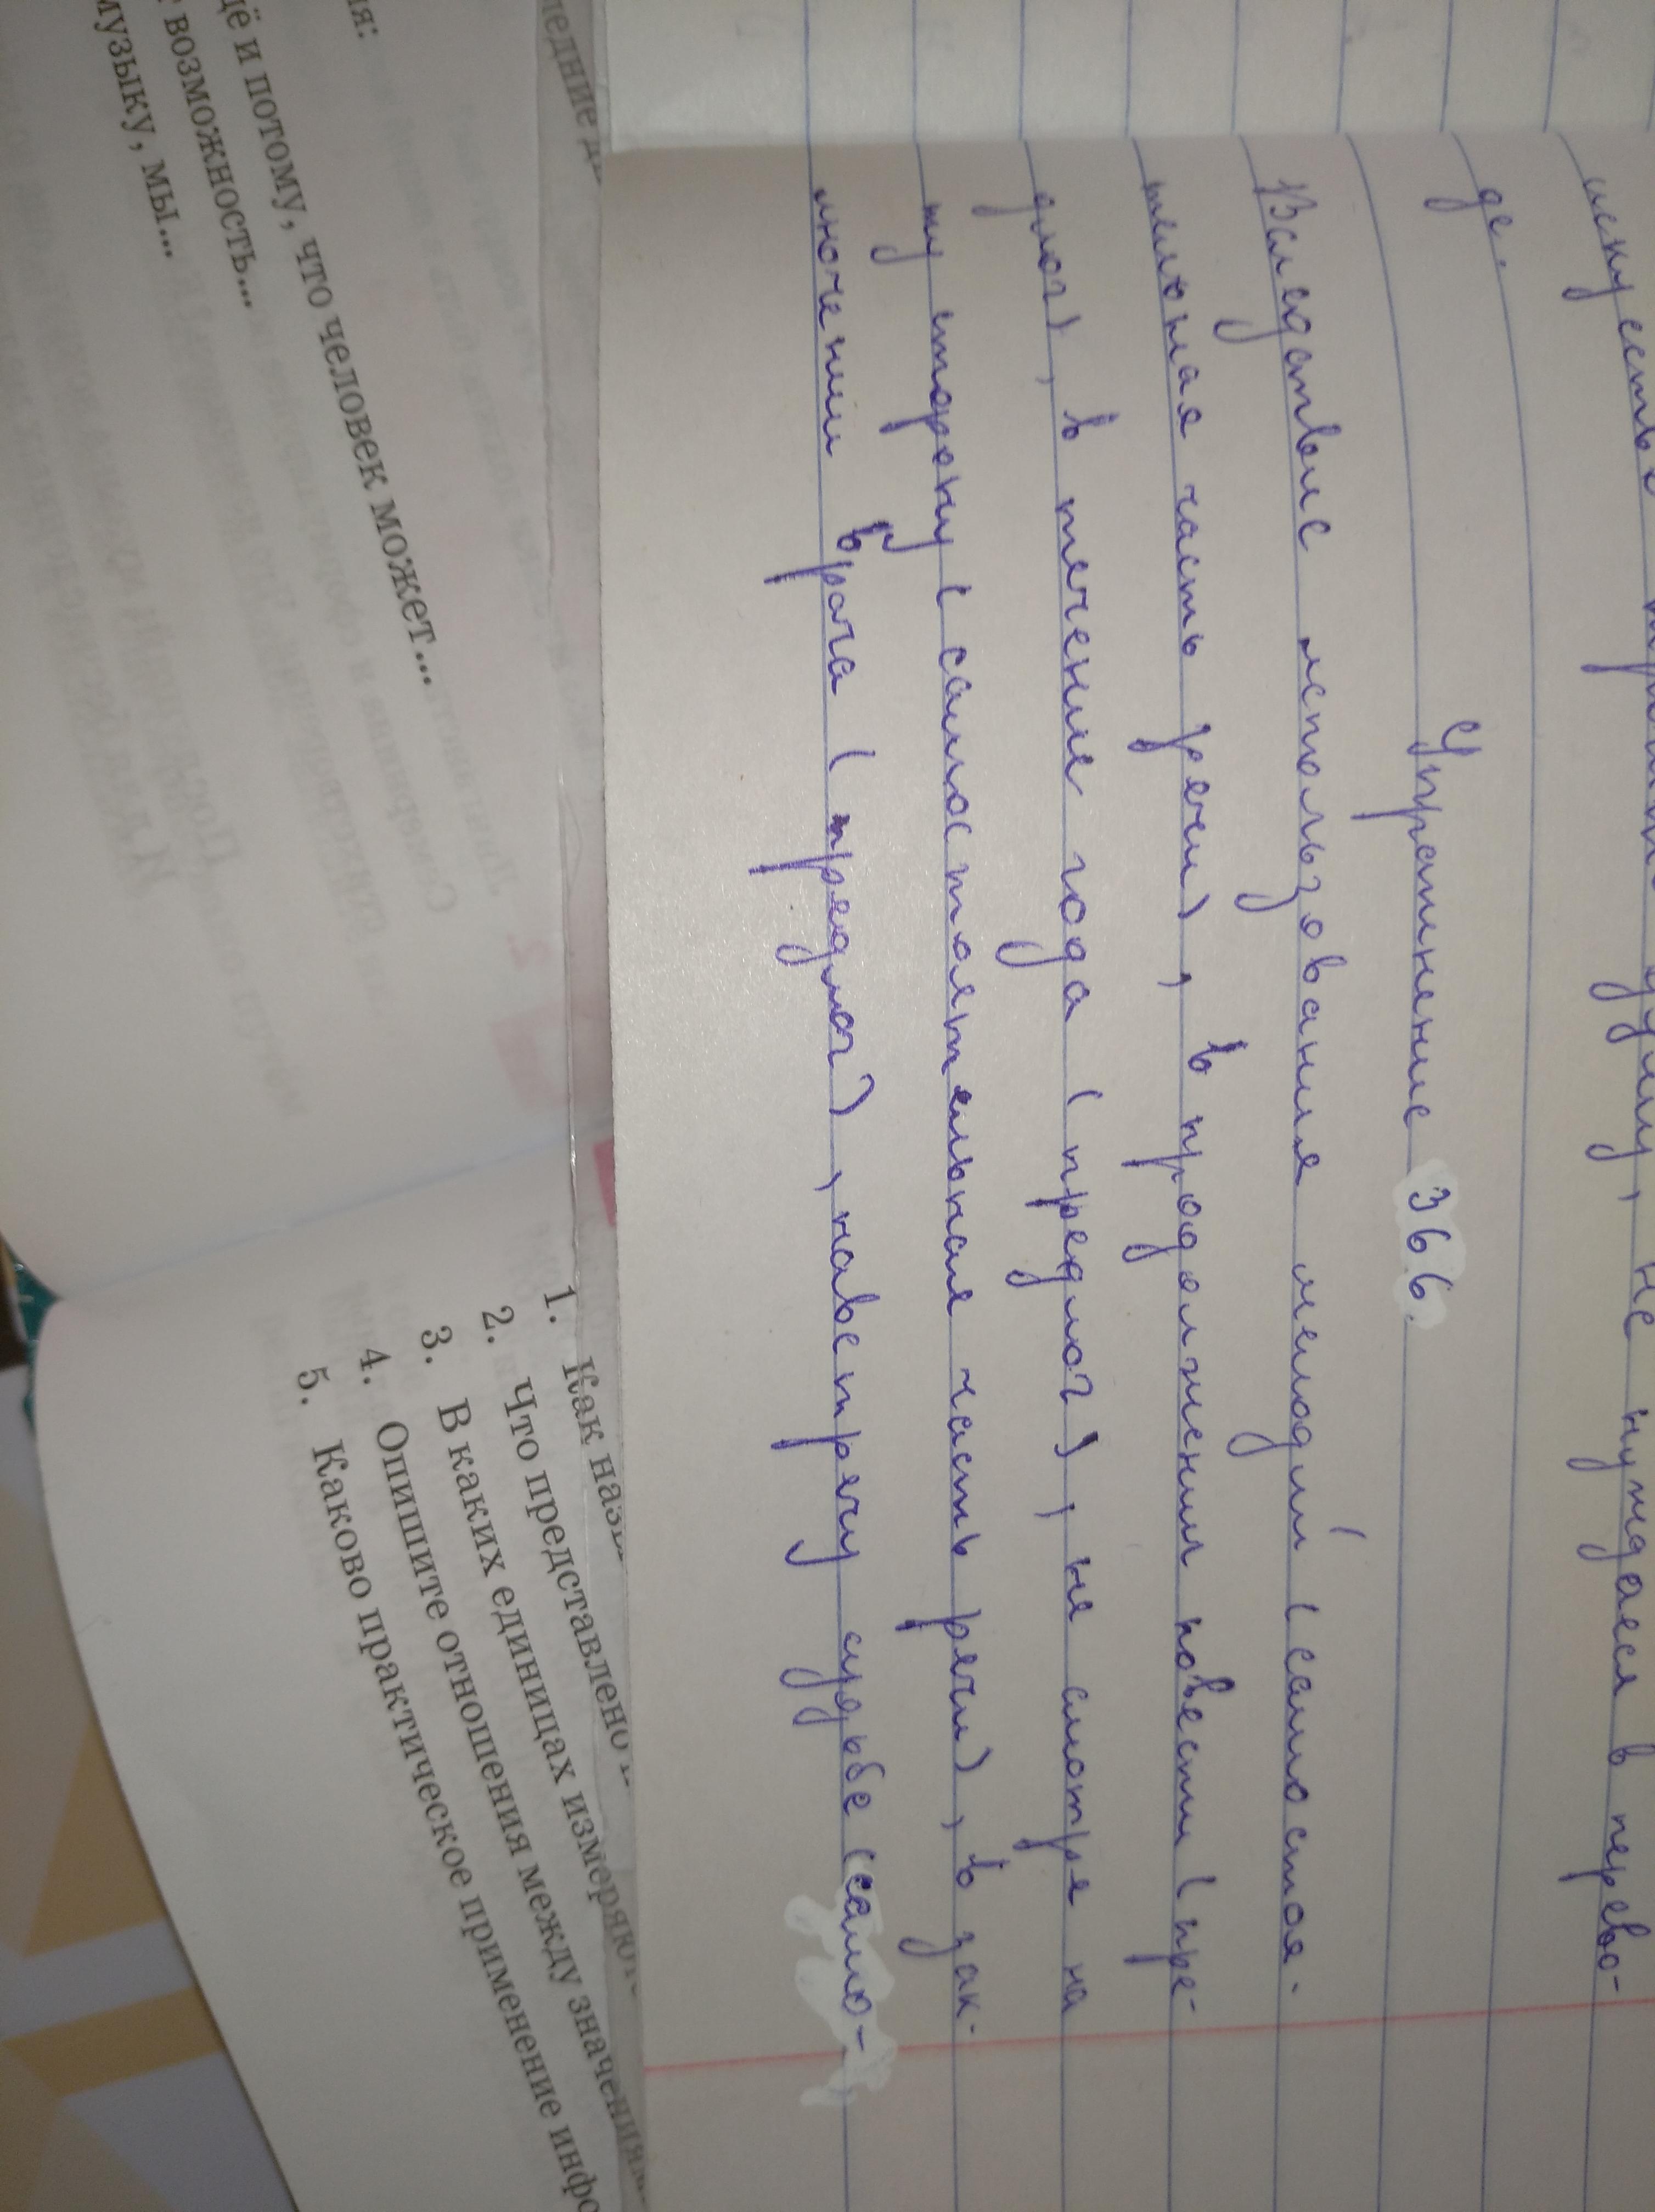 искусств
не нуждаеся в перево-
де.
Упражнение 366.
Вследствие использования мелодий (самостоя-
тельная часть речи), в продолжении повести (пре-
длог), в течение года (предлог), не смотря на
ту сторону (самостоятельная часть речи), в зак-
лючении врача (предлог), навстречу судьбе (само-
ледние
ия:
щё и потому, что человек может...
возможность...
музыку, мы...
1. Как назы
2. Что представлено
3. В каких единицах измеряют
4. Опишите отношения между значениям
5. Каково практическое применение инфо